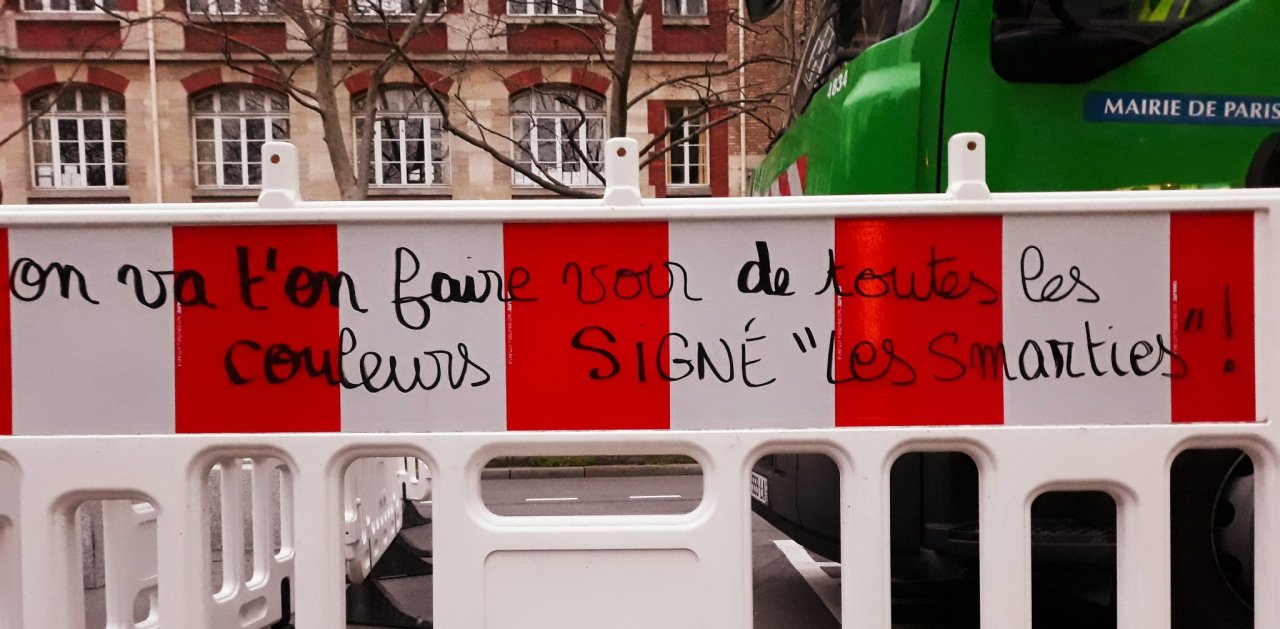 4634
MAIRIE DE PARIS
on va t'on faire voir de toutes les
couleurs SIGNÉ "Les Smarties"!